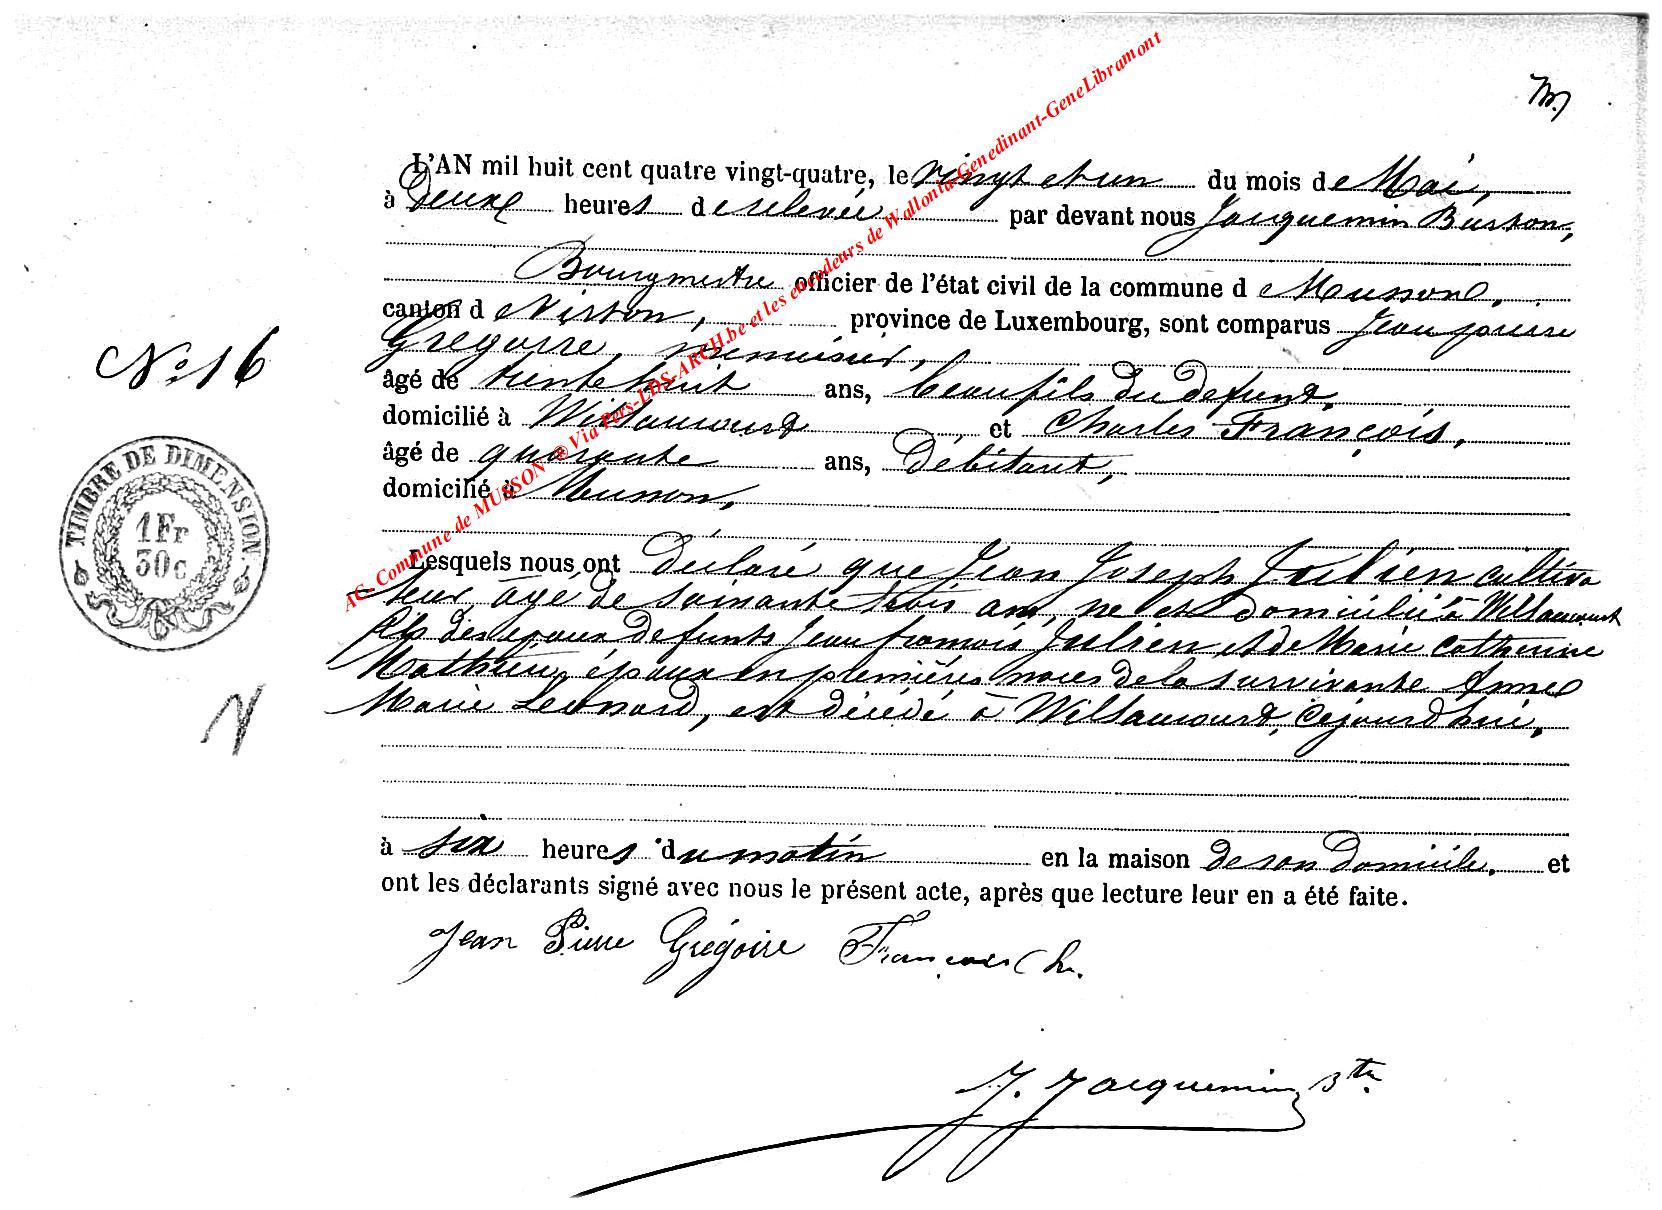 L'AN mil huit cent quatre vingt-quatre, le vingt et un du mois de Mai,
à deux heures de relevée par devant nous Jacquemin Busson,
Bourgmestre officier de l'état civil de la commune de Musson,
canton de Virton, province de Luxembourg, sont comparus Jean pierre
Grégoire, menuisier,
âgé de trente huit ans, beau fils du defunt,
domicilié à Willancourt et Charles François,
âgé de quarante ans, Débitant,
domicilié à Musson,
Lesquels nous ont déclaré que Jean Joseph Julien cultiva
teur âgé de soixante trois ans, né et domicilié à Willancourt
fils des époux defunts Jean francois Julien et de Marie Catherine
Mathieu, époux en premières noces de la survivante Anne
Marie Léonard, est décédé à Willancourt, cejourd'hui,
à six heures du matin en la maison de son domicile, et
ont les déclarants signé avec nous le présent acte, après que lecture leur en a été faite.
Jean Pierre Grégoire François Ch.
J. Jacquemin Btre
No 16
TIMBRE DE DIMENSION.
1 Fr
30 c
AC- Commune de MUSSON ® Via Pers-LDS-ARCH.be et les encodeurs de Wallonia-Genedinant-GeneLibramont